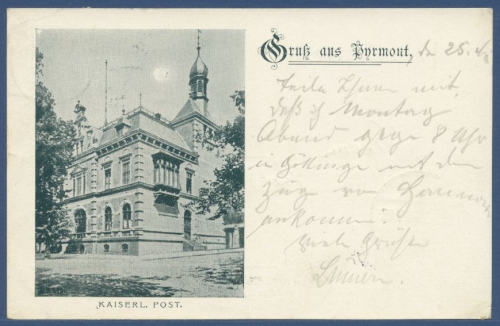 Gruß aus Pyrmont,
den 25.
Teile Ihnen mit,
daß ich Montag
Abend gegen 8 Uhr
in Göttingen mit dem
Zug von Hannover
ankomme.
Viele Grüße
KAISERL. POST.